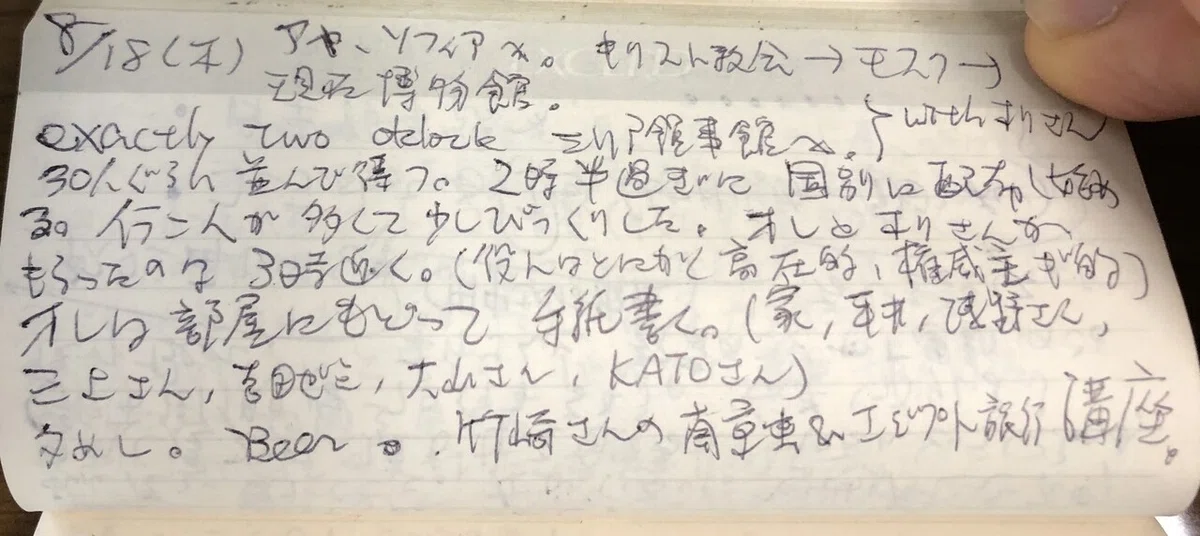 8/18(木) アヤ、ソフィアへ。キリスト教会→モスク→
現在博物館。
exactly two oclock シリア領事館へ。} with オリさん
30人ぐらい並んで待つ。2時半過ぎに国別に配布し始め
る。行く人が多くて少しびっくりした。オレとオリさんが
もらったのは3時近く。(役人はとにかく高圧的、権威主ぎ的)
オレは部屋にもどって手紙書く。(家, 平井, さん,
三上さん, 吉田ゼミ, 大山さん, KATOさん)
夕めし。Beer。竹崎さんの南京虫&エジプト旅行講座。